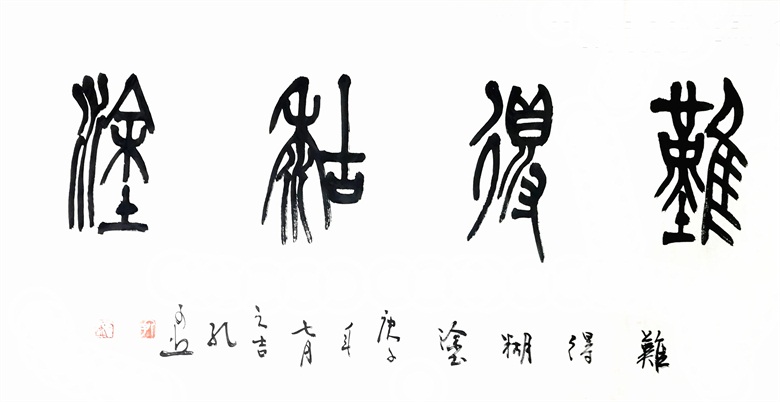 難得糊塗
難得糊塗庚子年七月之吉孔